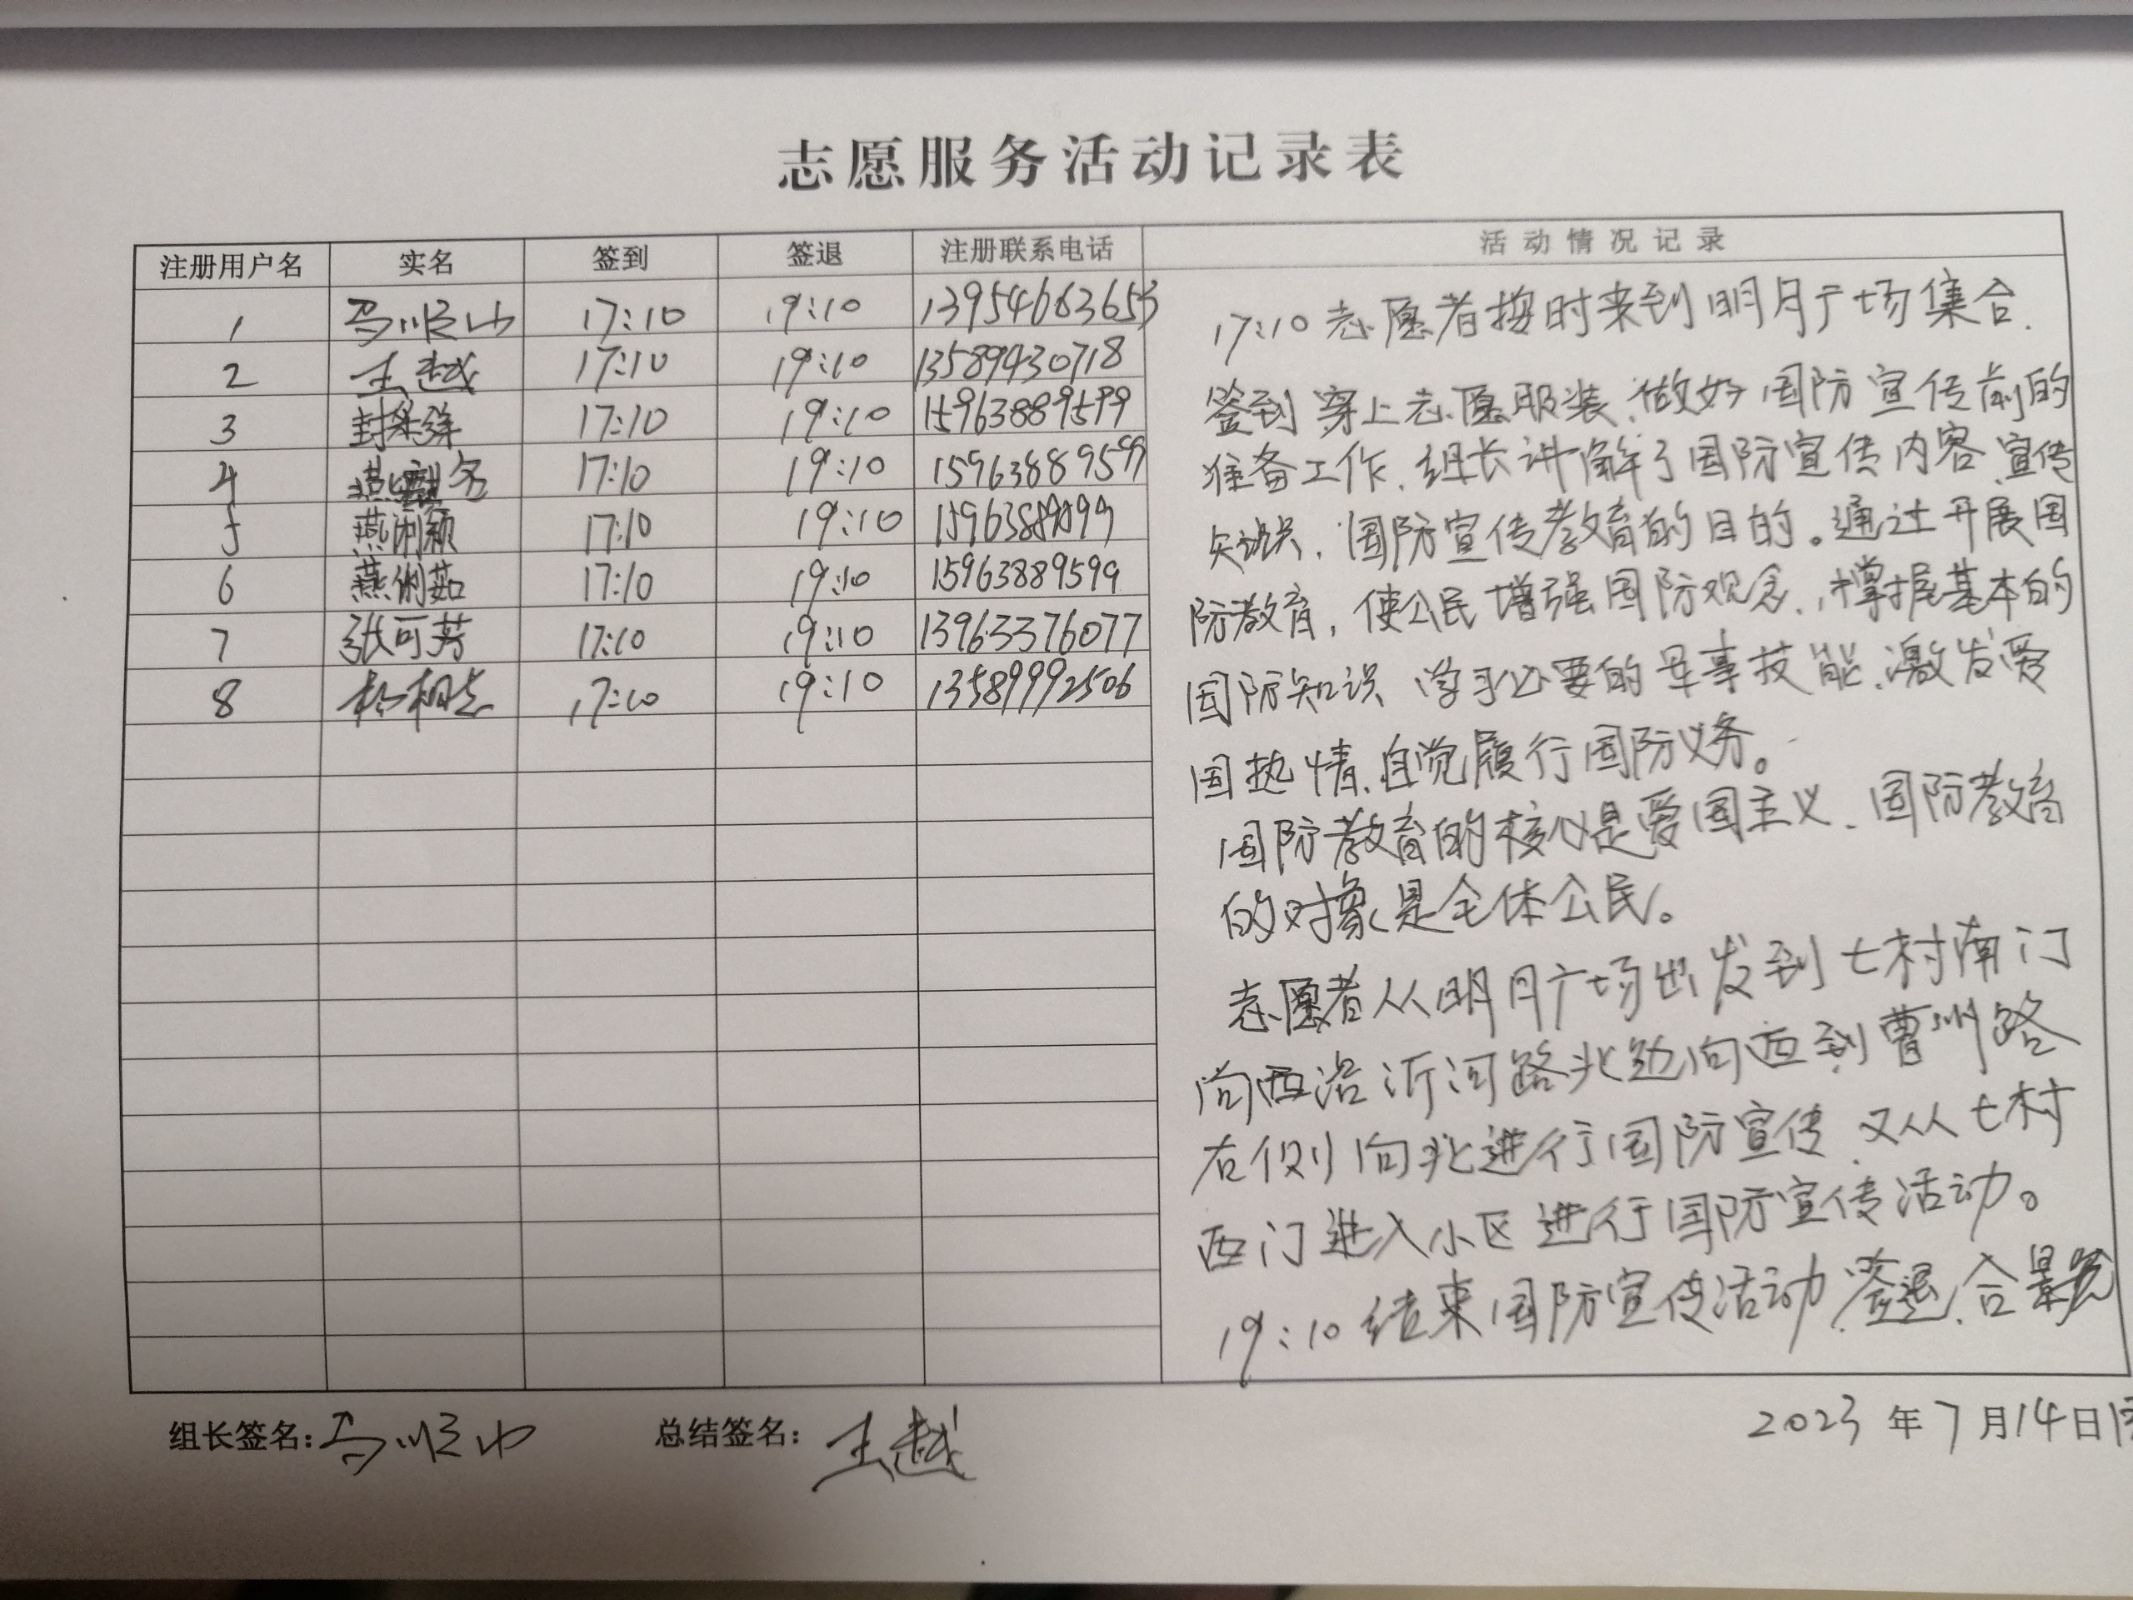 志愿服务活动记录表
注册用户名 实名 签到 签退 注册联系电话 活动情况记录
1 马顺山 17:10 19:10 13954663653
2 王越 17:10 19:10 13589430718
3 17:10 19:10 15963889599
4 17:10 19:10 15963889599
5 17:10 19:10 15963889599
6 燕俐茹 17:10 19:10 15963889599
7 张可芳 17:10 19:10 13963376077
8 17:10 19:10 13589992506
17:10志愿者按时来到明月广场集合.
签到穿上志愿服装、做好国防宣传前的
准备工作、组长讲解了国防宣传内容、宣传
知识、国防宣传教育的目的。通过开展国
防教育,使公民增强国防观念、掌握基本的
国防知识 学习必要的军事技能、激发爱
国热情、自觉履行国防义务。
国防教育的核心是爱国主义、国防教育
的对象是全体公民。
志愿者从明月广场出发到七村南门
向西沿沂河路北边向西到曹州路
右侧向北进行国防宣传、又从七村
西门进入小区进行国防宣传活动。
19:10结束国防宣传活动、签退、合影
组长签名:马顺山 总结签名:王越 2023年7月14日